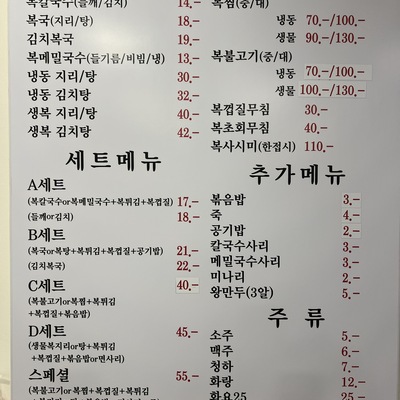 복칼국수(들깨/김치) 14.-
복국(지리/탕) 18.-
김치복국 19.-
복메밀국수(들기름/비빔/냉) 13.-
냉동 지리/탕 30.-
냉동 김치탕 32.-
생복 지리/탕 40.-
생복 김치탕 42.-
세트메뉴
A세트
(복칼국수or복메밀국수+복튀김+복껍질) 17.-
(들깨or김치) 18.-
B세트
(복국or복탕+복튀김+복껍질+공기밥) 21.-
(김치복국) 22.-
C세트 40.-
(복불고기or복찜+복튀김
+복껍질+볶음밥)
D세트 45.-
(생물복지리or탕+복튀김
+복껍질+볶음밥or면사리)
스페셜 55.-
(복불고기or복찜+복튀김
복찜(중/대)
냉동 70.-/100.-
생물 90.-/130.-
복불고기(중/대)
냉동 70.-/100.-
생물 100.-/130.-
복껍질무침 30.-
복초회무침 40.-
복사시미(한접시) 110.-
추가메뉴
볶음밥 3.-
죽 4.-
공기밥 2.-
칼국수사리 3.-
메밀국수사리 3.-
미나리 2.-
왕만두(3알) 5.-
주 류
소주 5.-
맥주 6.-
청하 7.-
화랑 12.-
화요25 25.-